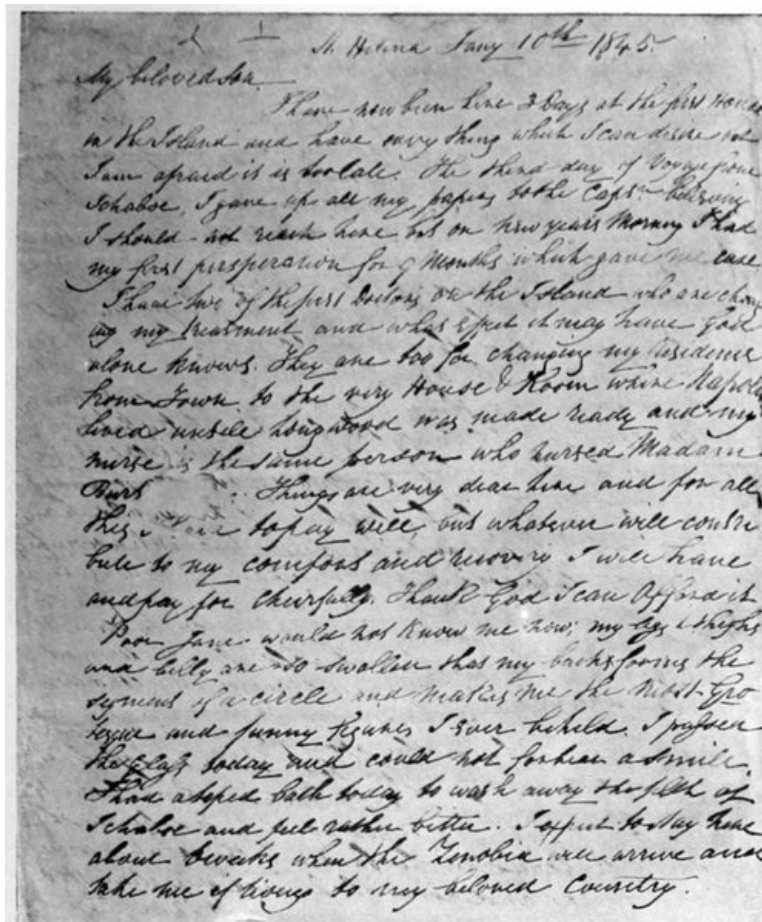 St. Helena Jany 10th 1845.
My beloved Son
I have now been here 3 Days at the first House
in the Island and have every thing which I can desire but
I am afraid it is too late. The third day of Voyage from
Ichaboe, I gave up all my papers to the Captn. believing
I should not reach here but on New years Morning I had
my first perspiration for 9 Months which gave me ease
I have two of the first Doctors on the Island who are chang
ing my treatment and what effect it may have God
alone knows. They are too for changing my residence
from Town to the very House & Room where Napoleon
lived untill Longwood was made ready and my
nurse is the same person who nursed Madam
Things are very dear here and for all
this to pay well, but whatever will contri
bute to my comfort and recovery I will have
and pay for cheerfully. Thank God I can afford it
Poor Jane would not know me now; my legs & thighs
and belly are so swollen that my back forms the
segment of a circle and makes me the most Gro
tesque and funny figure I ever beheld. I passed
the Glass today and could not forbear a smile
I had a bath today to wash away the filth of
Ichaboe and feel rather better. I expect to stay here
about weeks when the Zenobia will arrive and
take me if living to my beloved Country.